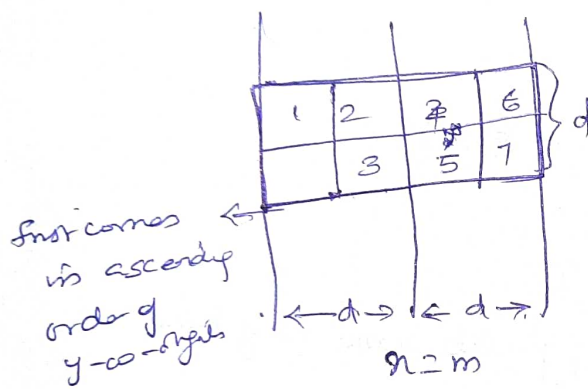 1 2 6
3 5 7
d
first comes
in ascending
order of
y-co-
d d
x = m